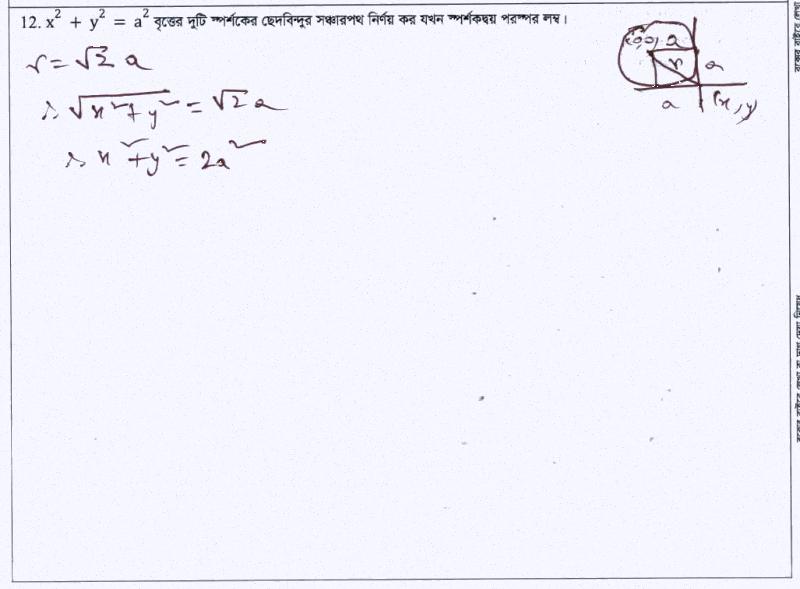 12. x² + y² = a² বৃত্তের দুটি স্পর্শকের ছেদবিন্দুর সঞ্চারপথ নির্ণয় কর যখন স্পর্শকদ্বয় পরস্পর লম্ব।
(0,0) a
r a
a (x, y)
r = √2 a
∴ √x² + y² = √2 a
∴ x² + y² = 2a²